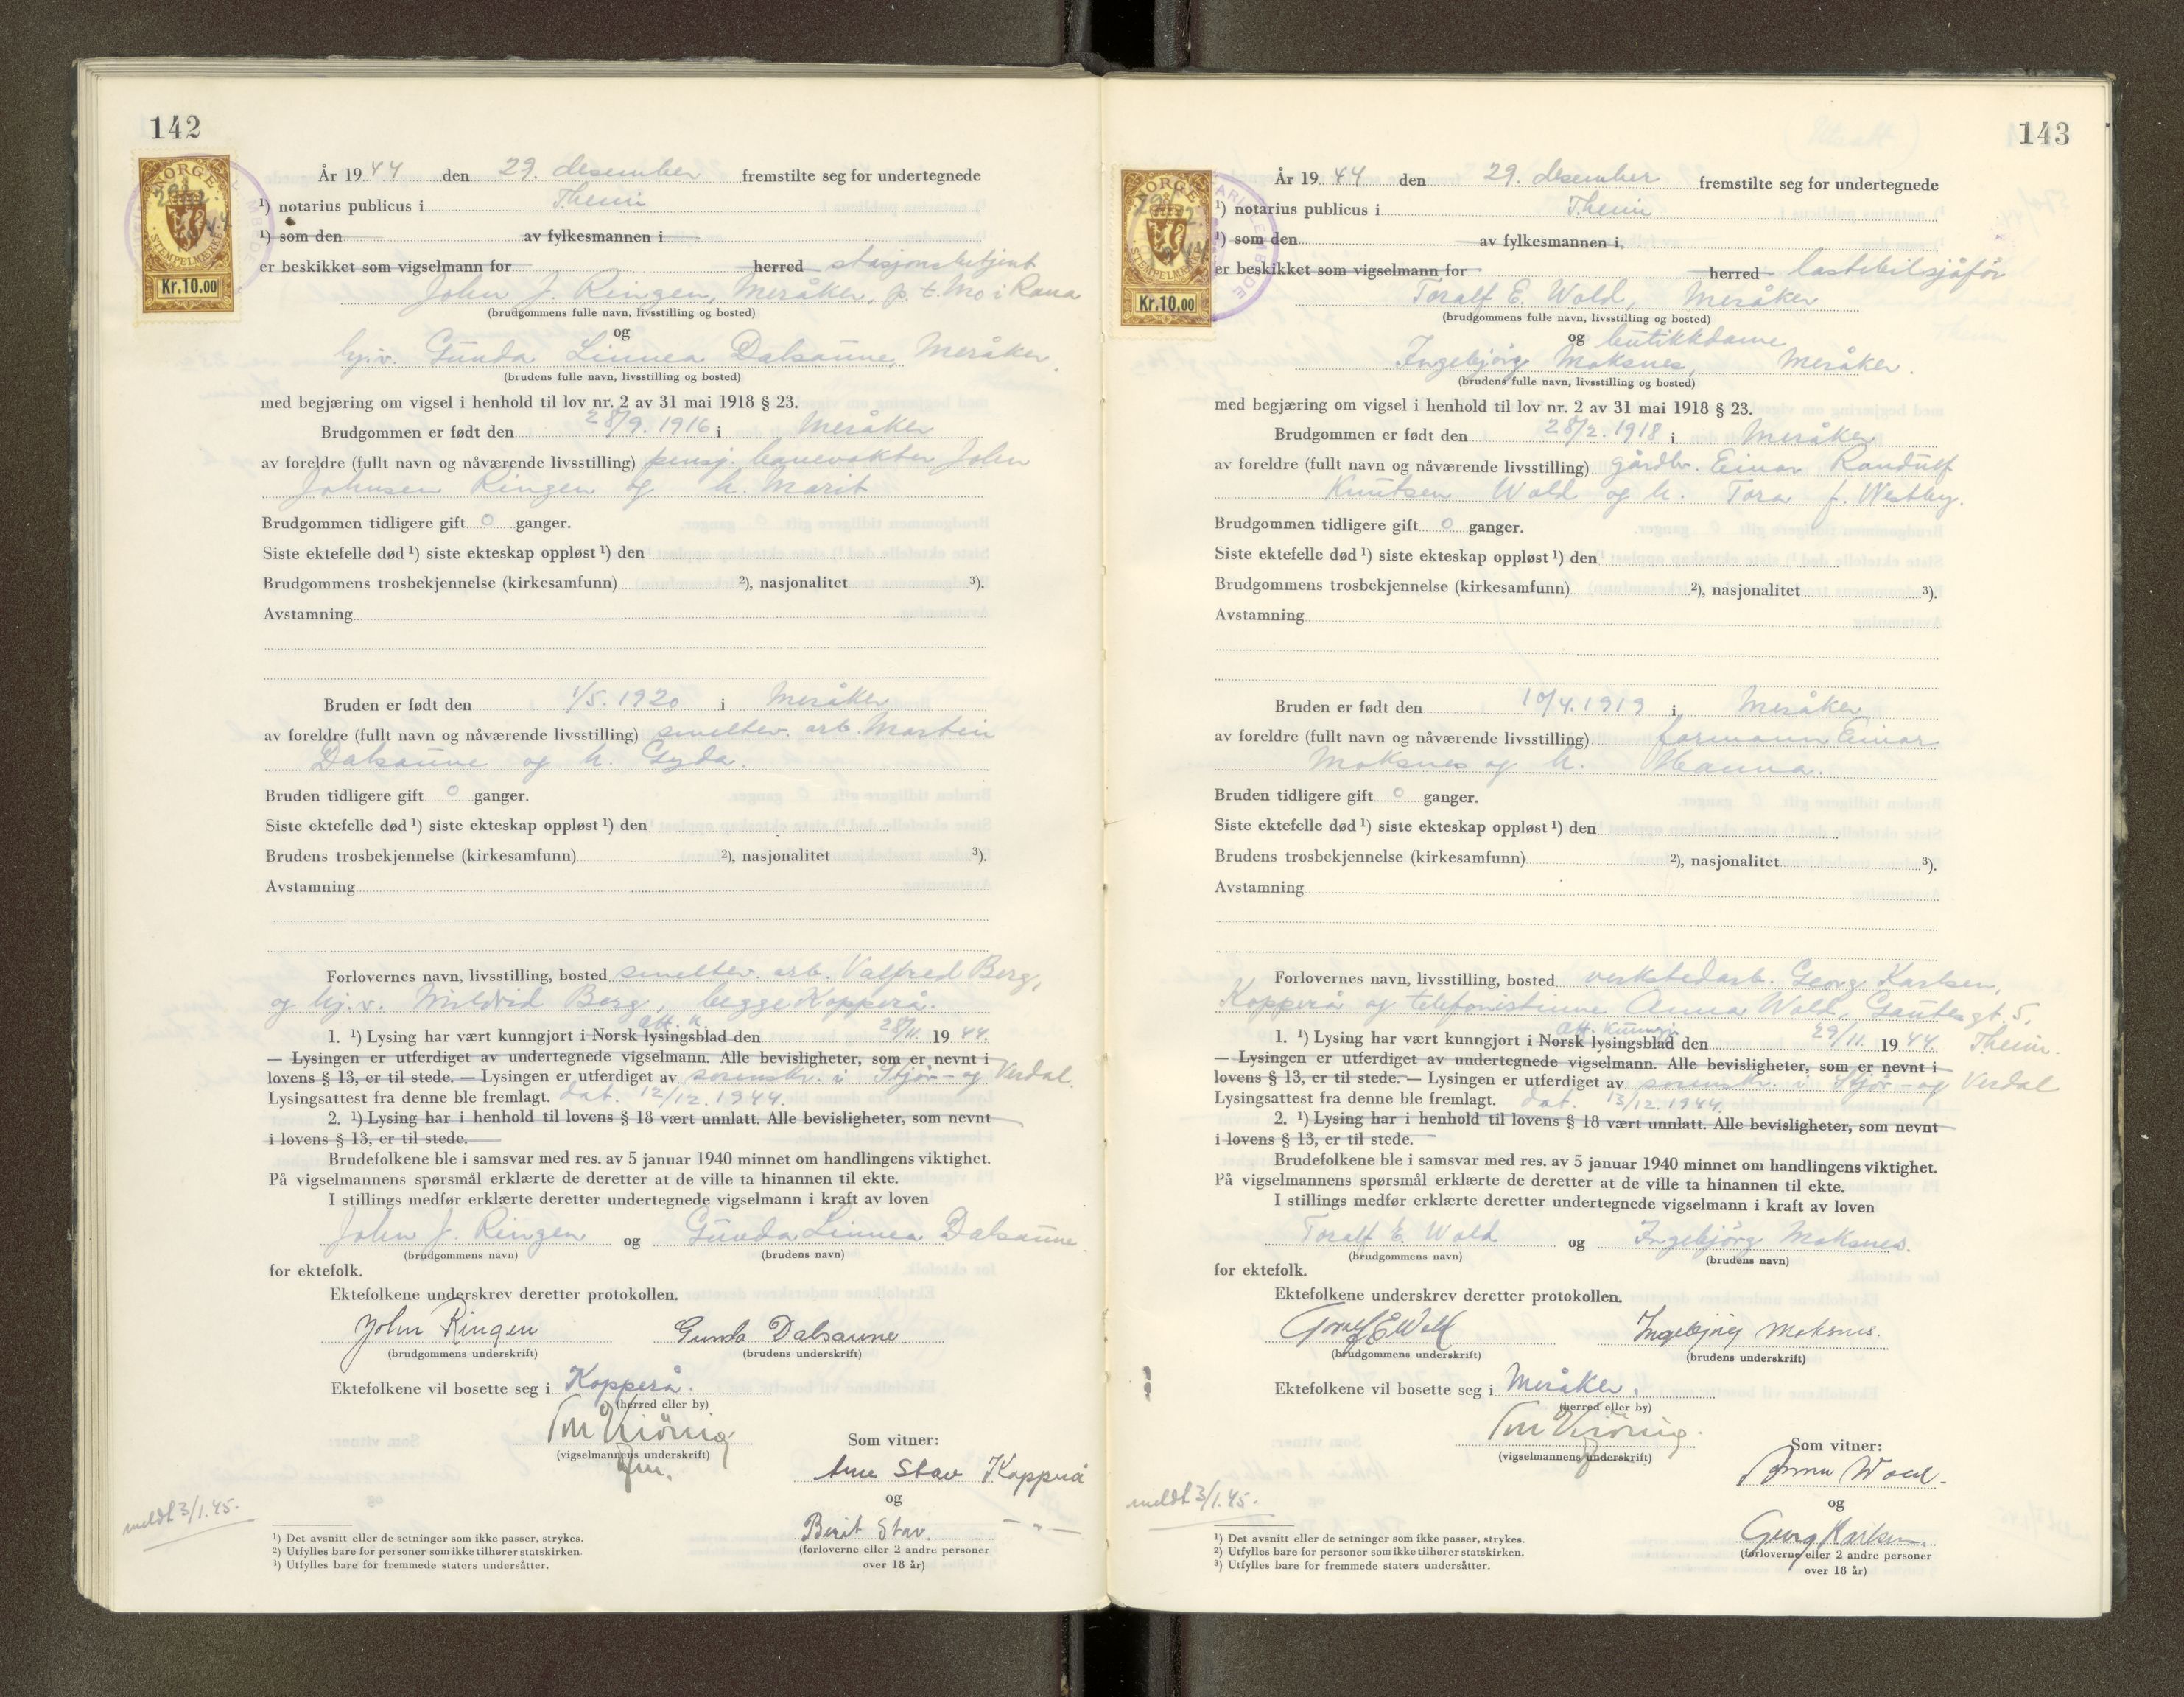 142
NORGE
STEMPELMERKE
Kr.10.00
År 1944 den 29. desember fremstilte seg for undertegnede
¹) notarius publicus i Theim
¹) som den av fylkesmannen i
er beskikket som vigselmann for herred stasjonsbetjent
John J. Ringen, Meråker, p. t. Mo i Rana
(brudgommens fulle navn, livsstilling og bosted)
og
hj.v. Gunda Linnea Dalsaune, Meråker.
(brudens fulle navn, livsstilling og bosted)
med begjæring om vigsel i henhold til lov nr. 2 av 31 mai 1918 § 23.
Brudgommen er født den 28/9. 1916 i Meråker
av foreldre (fullt navn og nåværende livsstilling) pensj. banevokter John
Johnsen Ringen og h. Marit
Brudgommen tidligere gift 0 ganger.
Siste ektefelle død ¹) siste ekteskap oppløst ¹) den
Brudgommens trosbekjennelse (kirkesamfunn) ²), nasjonalitet ³).
Avstamning
Bruden er født den 1/5. 1920 i Meråker
av foreldre (fullt navn og nåværende livsstilling) smeltev. arb. Martin
Dalsaune og h. Gyda.
Bruden tidligere gift 0 ganger.
Siste ektefelle død ¹) siste ekteskap oppløst ¹) den
Brudens trosbekjennelse (kirkesamfunn) ²), nasjonalitet ³).
Avstamning
Forlovernes navn, livsstilling, bosted smeltev. arb. Valfred Berg,
og hj.v. Mildrid Berg, begge Kopperå.
att. k
1. ¹) Lysing har vært kunngjort i Norsk lysingsblad den 28/11. 1944.
— Lysingen er utferdiget av undertegnede vigselmann. Alle bevisligheter, som er nevnt i
lovens § 13, er til stede. — Lysingen er utferdiget av sorenskr. i Stjør- og Verdal.
Lysingsattest fra denne ble fremlagt. dat. 12/12. 1944.
2. ¹) Lysing har i henhold til lovens § 18 vært unnlatt. Alle bevisligheter, som nevnt
i lovens § 13, er til stede.
Brudefolkene ble i samsvar med res. av 5 januar 1940 minnet om handlingens viktighet.
På vigselmannens spørsmål erklærte de deretter at de ville ta hinannen til ekte.
I stillings medfør erklærte deretter undertegnede vigselmann i kraft av loven
John J. Ringen og Gunda Linnea Dalsaune.
(brudgommens navn) (brudens navn)
for ektefolk.
Ektefolkene underskrev deretter protokollen.
John Ringen Gunda Dalsaune
(brudgommens underskrift) (brudens underskrift)
Ektefolkene vil bosette seg i Kopperå.
(herred eller by)
(vigselmannens underskrift)
Som vitner:
Stav Kopperå
og
Berit Stav — " —
(forloverne eller 2 andre personer
over 18 år)
meldt 3/1.45.
¹) Det avsnitt eller de setninger som ikke passer, strykes.
²) Utfylles bare for personer som ikke tilhører statskirken.
³) Utfylles bare for fremmede staters undersåtter.
143
NORGE
STEMPELMERKE
Kr.10.00
År 1944 den 29. desember fremstilte seg for undertegnede
¹) notarius publicus i Theim
¹) som den av fylkesmannen i
er beskikket som vigselmann for herred lastebilsjåfør
Toralf E. Wold, Meråker
(brudgommens fulle navn, livsstilling og bosted)
og butikkdame
Ingebjørg Moksnes, Meråker.
(brudens fulle navn, livsstilling og bosted)
med begjæring om vigsel i henhold til lov nr. 2 av 31 mai 1918 § 23.
Brudgommen er født den 28/2. 1918 i Meråker
av foreldre (fullt navn og nåværende livsstilling) gårdbr. Einar Randulf
Knutsen Wold og h. Tora f. Westby.
Brudgommen tidligere gift 0 ganger.
Siste ektefelle død ¹) siste ekteskap oppløst ¹) den
Brudgommens trosbekjennelse (kirkesamfunn) ²), nasjonalitet ³).
Avstamning
Bruden er født den 10/4. 1919 i Meråker
av foreldre (fullt navn og nåværende livsstilling) formann Einar
Moksnes og h. Hanna.
Bruden tidligere gift 0 ganger.
Siste ektefelle død ¹) siste ekteskap oppløst ¹) den
Brudens trosbekjennelse (kirkesamfunn) ²), nasjonalitet ³).
Avstamning
Forlovernes navn, livsstilling, bosted verkstedarb. Georg Karlsen,
Kopperå og telefonistinne Anna Wold, Gautesgt. 5,
att. kunngj.
1. ¹) Lysing har vært kunngjort i Norsk lysingsblad den 29/11. 1944. Theim.
— Lysingen er utferdiget av undertegnede vigselmann. Alle bevisligheter, som er nevnt i
lovens § 13, er til stede. — Lysingen er utferdiget av sorenskr. i Stjør- og Verdal
Lysingsattest fra denne ble fremlagt. dat. 13/12. 1944.
2. ¹) Lysing har i henhold til lovens § 18 vært unnlatt. Alle bevisligheter, som nevnt
i lovens § 13, er til stede.
Brudefolkene ble i samsvar med res. av 5 januar 1940 minnet om handlingens viktighet.
På vigselmannens spørsmål erklærte de deretter at de ville ta hinannen til ekte.
I stillings medfør erklærte deretter undertegnede vigselmann i kraft av loven
Toralf E. Wold og Ingebjørg Moksnes.
(brudgommens navn) (brudens navn)
for ektefolk.
Ektefolkene underskrev deretter protokollen.
Toralf E Wold Ingebjørg Moksnes.
(brudgommens underskrift) (brudens underskrift)
Ektefolkene vil bosette seg i Meråker.
(herred eller by)
(vigselmannens underskrift)
Som vitner:
Anna Wold.
og
Georg Karlsen.
(forloverne eller 2 andre personer
over 18 år)
meldt 3/1.45.
¹) Det avsnitt eller de setninger som ikke passer, strykes.
²) Utfylles bare for personer som ikke tilhører statskirken.
³) Utfylles bare for fremmede staters undersåtter.